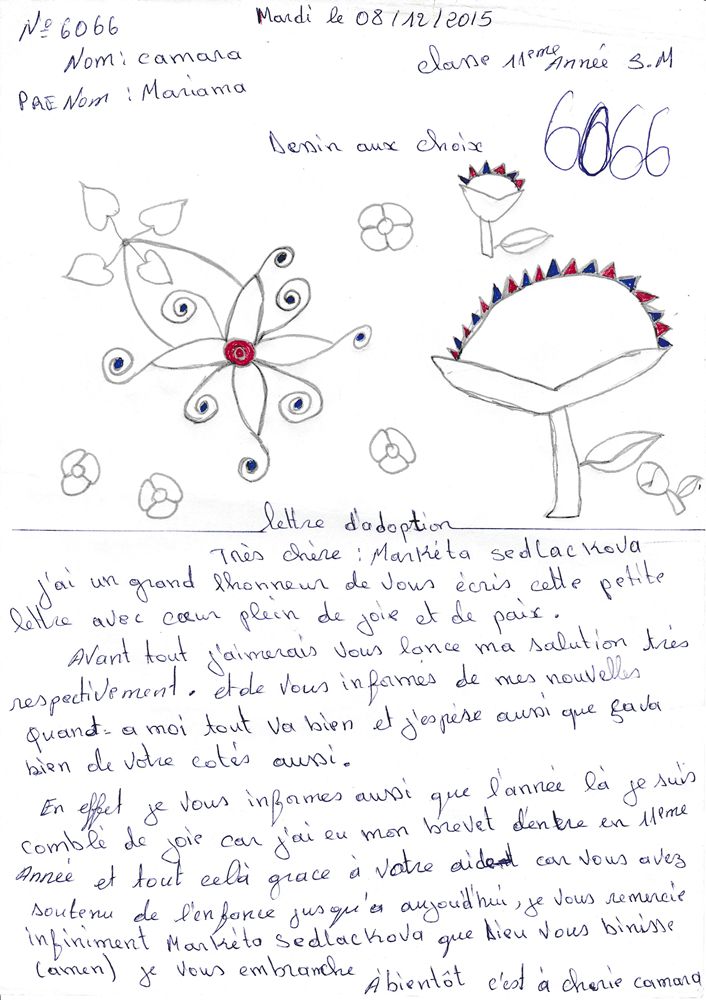 Mardi le 08/12/2015
N° 6066
Nom : camara
classe 11eme Année S.M
PRENom : Mariama
6066
Dessin aux choix
lettre d'adoption
Très chère : Markéta sedlackova
j'ai un grand lhonneur de vous écris cette petite
lettre avec cœur plein de joie et de paix.
Avant tout j'aimerais vous lance ma salution très
respectivement. et de vous informés de mes nouvelles
Quant-a moi tout va bien et j'espère aussi que çava
bien de votre cotés aussi.
En effet je vous informes aussi que l'année là je suis
comblé de joie car j'ai eu mon brevet d'entre en 11eme
Année et tout celà grace à votre aide car vous avez
soutenu de l'enfance jusqu'a aujourd'hui, je vous remercie
infiniment Markéta sedlackova que Dieu vous binisse
(amen) je vous embranche
Àbientôt c'est à cherie camara